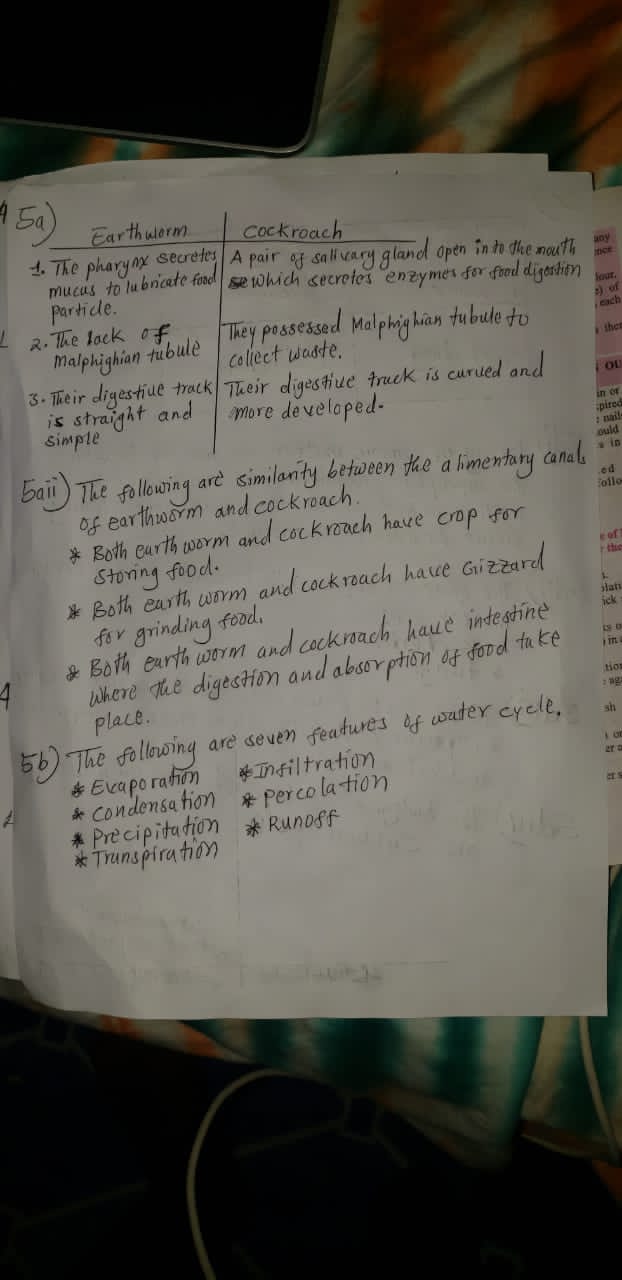 5a)
Earthworm | Cockroach
1. The pharynx secretes | A pair of salivary gland open in to the mouth
mucus to lubricate food | which secretes enzymes for food digestion
Particle.
2. The lack of | They possessed Malphighian tubule to
Malphighian tubule | collect waste.
3. Their digestive track | Their digestive track is curved and
is straight and | more developed.
simple
5aii) The following are similarity between the alimentary canals
of earthworm and cockroach.
* Both earth worm and cockroach have crop for
storing food.
* Both earth worm and cockroach have Gizzard
for grinding food.
* Both earth worm and cockroach have intestine
where the digestion and absorption of food take
place.
5b) The following are seven features of water cycle.
* Evaporation * Infiltration
* Condensation * Percolation
* Precipitation * Runoff
* Transpiration